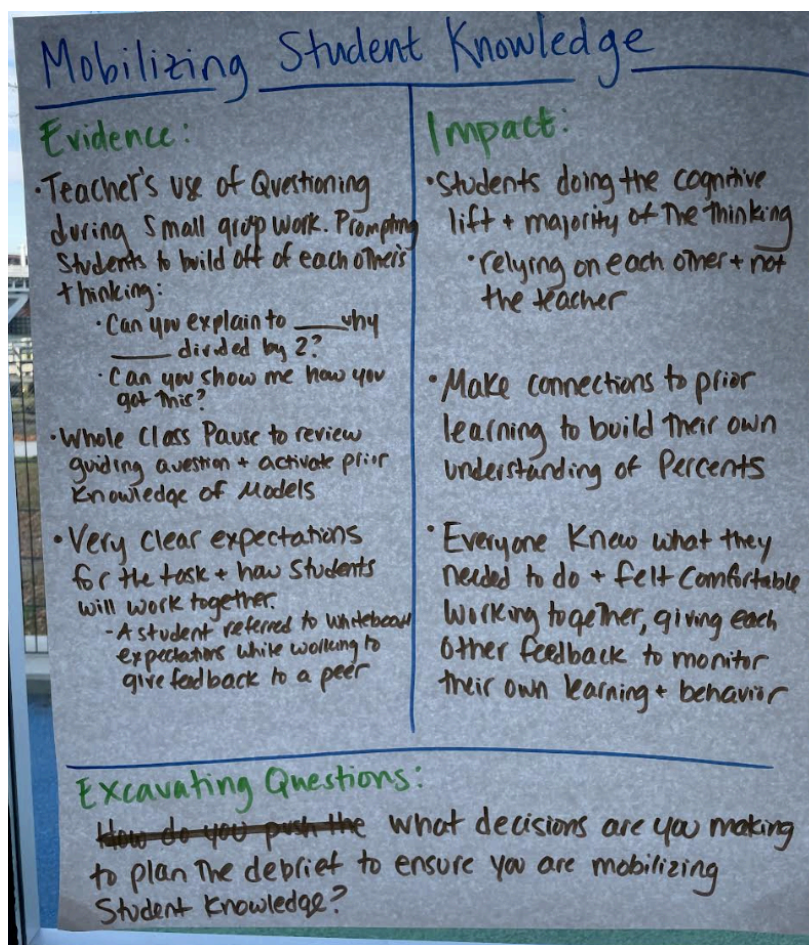 Mobilizing Student Knowledge
Evidence:
• Teacher's use of Questioning
during small group work. Prompting
Students to build off of each other's
thinking:
• Can you explain to ___ why
___ divided by 2?
• Can you show me how you
got this?
• Whole Class Pause to review
guiding question + activate prior
Knowledge of Models
• Very clear expectations
for the task + how students
will work together.
- A student referred to whiteboard
expectations while working to
give feedback to a peer
Impact:
• Students doing the cognitive
lift + majority of the thinking
• relying on each other + not
the teacher
• Make connections to prior
learning to build their own
understanding of Percents
• Everyone Knew what they
needed to do + felt comfortable
working together, giving each
other feedback to monitor
their own learning + behavior
Excavating Questions:
How do you push the what decisions are you making
to plan the debrief to ensure you are mobilizing
Student Knowledge?